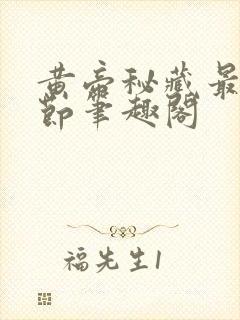 黄帝秘藏最
节笔趣阁
福先生1